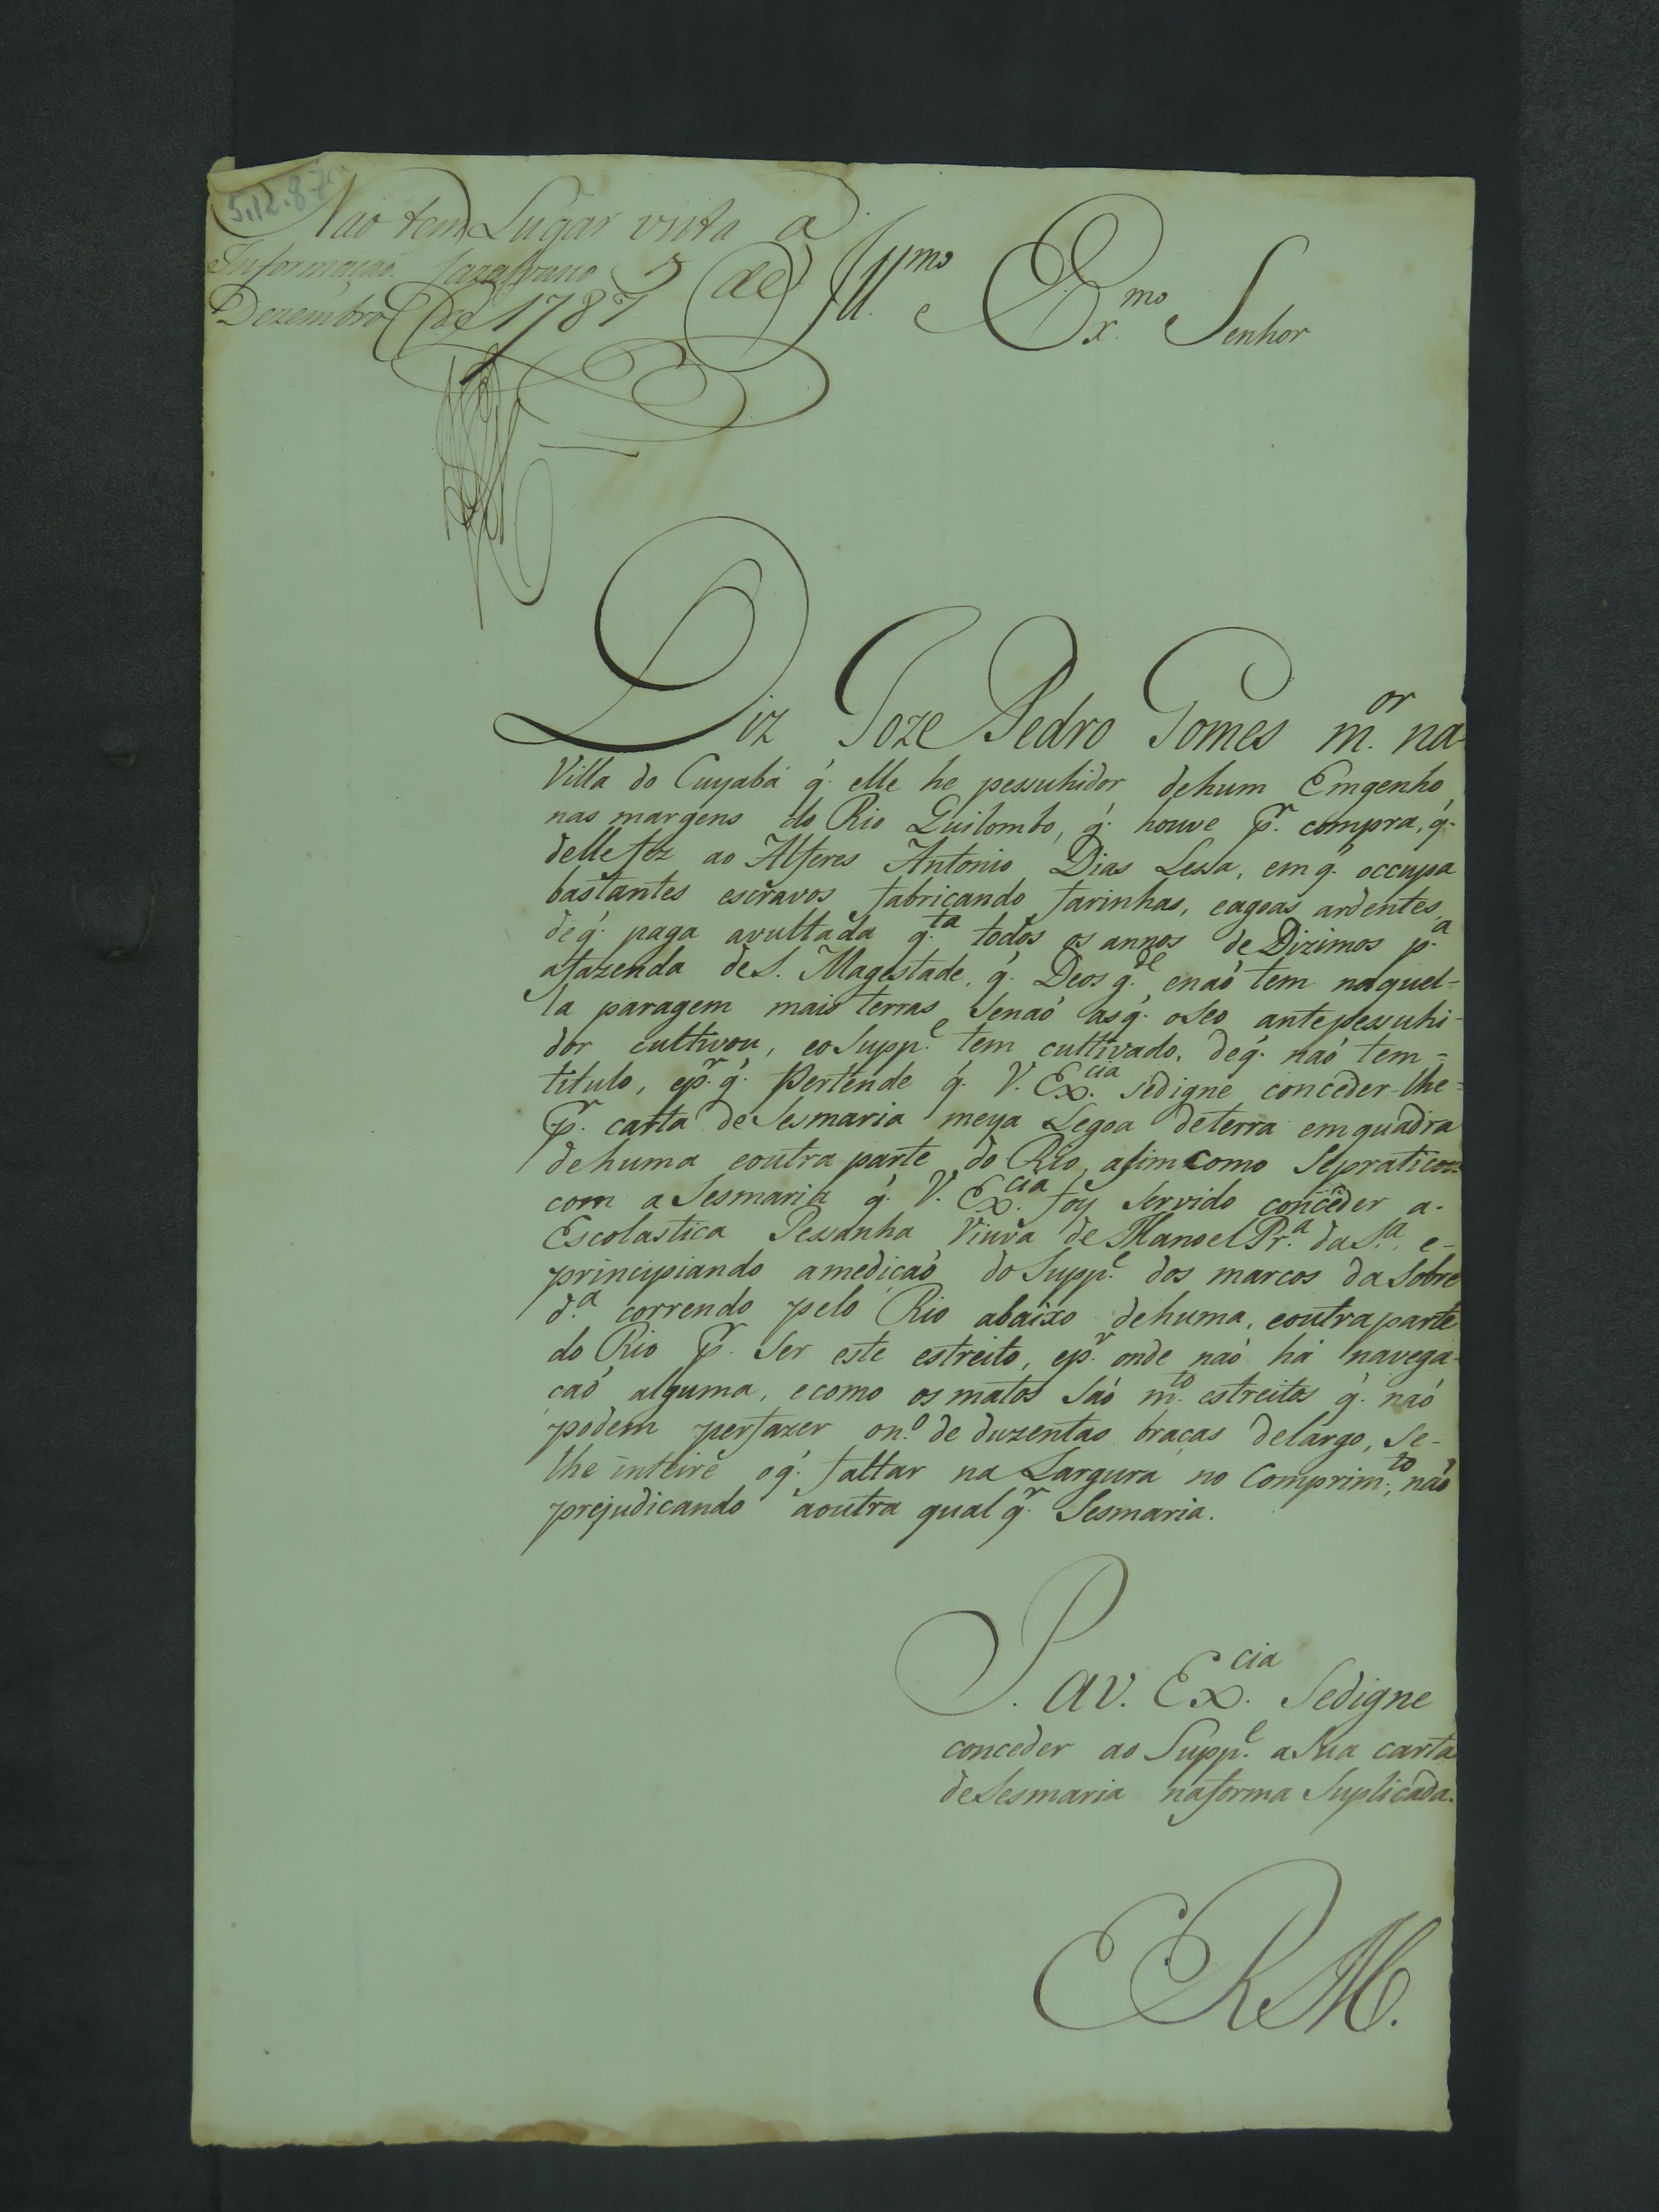 5.12.87
Nao tem Lugar vista a
Informaçaó. 5 de
Dezembro de 1787
Ill.mo e Ex.mo Senhor
Diz Joze Pedro Gomes m.or na
Villa do Cuyabá q̃. elle he pessuhidor dehum Emgenho
nas margens do Rio Quilombo, q̃. houve p.r compra, q̃.
delle fez ao Alferes Antonio Dias Lessa, em q̃. occupa
bastantes escravos fabricando farinhas, eagoas ardentes,
de q̃. paga avultada q.ta todos os annos de Dizimos p.a
afazenda de S. Magestade, q̃. Deos g.de enaó tem naquel-
la paragem mais terras senaó as q̃. oseo antepessuhi-
dor cultivou, eo Supp.e tem cultivado, de q̃. naó tem=
titulo, ep.r q̃. Pertende q̃. V. Ex.cia sedigne conceder-lhe=
p.r carta de Sesmaria meya Legoa deterra emquadra
dehuma eoutra parte do Rio, asim como Sepraticou
com a Sesmaria q̃. V. Ex.cia foy servido conceder a-
Escolastica Pessanha Viuva de Manoel Pr.a da S.a, e-
principiando amediçaó do Supp.e dos marcos da sobre
d.a correndo pelo Rio abaixo dehuma, eoutra parte
do Rio p.r ser este estreito, ep.r onde naó há navega-
çaó alguma, ecomo os matos saó m.to estreitos q̃. naó
podem perfazer on.o de duzentas braças delargo, se-
lhe inteire oq̃. faltar na Largura no Comprim.to, naó
prejudicando aoutra qual q.r Sesmaria.
P. av. Ex.cia Sedigne
conceder ao Supp.e asua carta
de Sesmaria naforma Suplicada.
E R M.